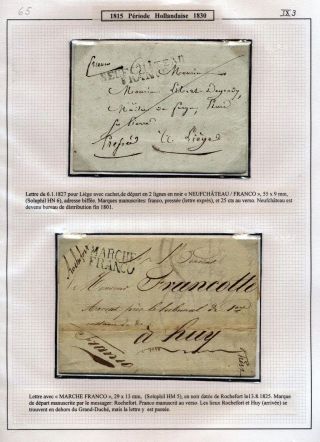 65
1815 Période Hollandaise 1830
IX 3
franco
NEUFCHÂTEAU
FRANCO
Monsieur
Monsieur
Pressée
à Liège
Lettre du 6.1.1827 pour Liège avec cachet de départ en 2 lignes en noir « NEUFCHÂTEAU / FRANCO », 55 x 9 mm,
(Solophil HN 6), adresse biffée. Marques manuscrites: franco, pressée (lettre exprès), et 25 cm au verso. Neufchâteau est
devenu bureau de distribution fin 1801.
MARCHE
FRANCO
Monsieur
Monsieur Francotte
Avocat près le tribunal de 1ère
à huy
franco
Lettre avec « MARCHE FRANCO », 29 x 13 mm, (Solophil HM 5), en noir datée de Rochefort le13.8.1825. Marque
de départ manuscrite par le messager: Rochefort. Franco manuscrit au verso. Les lieux Rochefort et Huy (arrivée) se
trouvent en dehors du Grand-Duché, mais la lettre y est passée.